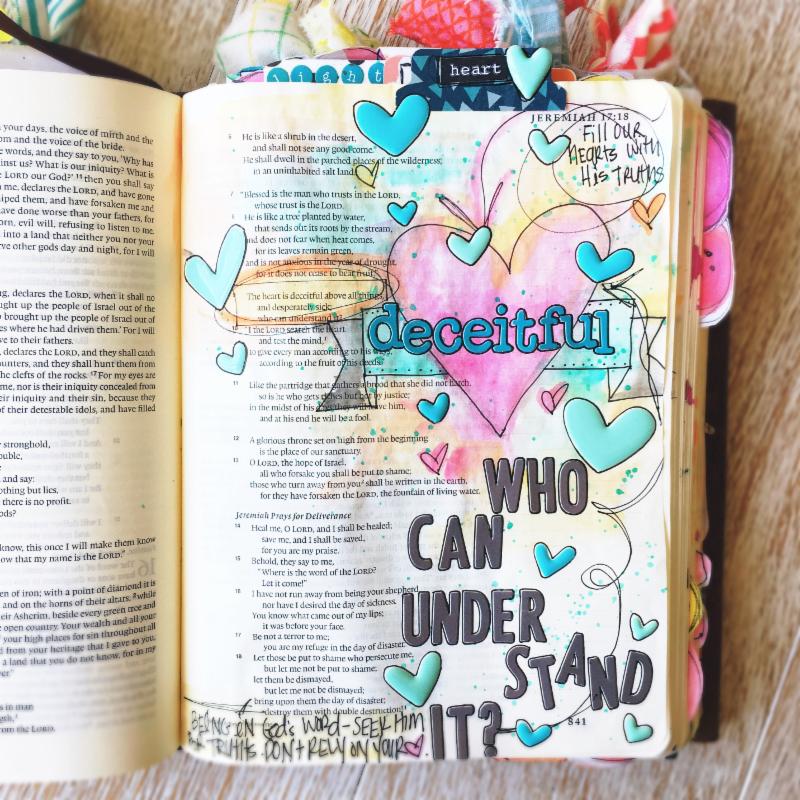 your days, the voice of mirth and the
om and the voice of the bride.
words, and they say to you, 'Why has
inst us? What is our iniquity? What is
LORD our God?' 11 then you shall say
me, declares the LORD, and have gone
iped them, and have forsaken me and
have done worse than your fathers, for
orn, evil will, refusing to listen to me.
into a land that neither you nor your
ve other gods day and night, for I will
ng, declares the LORD, when it shall no
ught up the people of Israel out of the
brought up the people of Israel out of
es where he had driven them.' For I will
ve to their fathers.
declares the LORD, and they shall catch
unters, and they shall hunt them from
he clefts of the rocks. 17 For my eyes are
me, nor is their iniquity concealed from
eir iniquity and their sin, because they
of their detestable idols, and have filled
stronghold,
ouble,
and say:
othing but lies,
there is no profit.
ods?
know, this once I will make them know
ow that my name is the LORD."
en of iron; with a point of diamond it is
and on the horns of their altars, 2 while
eir Asherim, beside every green tree and
open country. Your wealth and all your
your high places for sin throughout all
from your heritage that I gave to you,
a land that you do not know, for in my
ver."
s in man
ngth,
rom the LORD.
light
heart
JEREMIAH 17:18
Fill OUR
HEARTS WITH
HIS TRUTHS
6 He is like a shrub in the desert,
and shall not see any good come.
He shall dwell in the parched places of the wilderness,
in an uninhabited salt land.
7 "Blessed is the man who trusts in the LORD,
whose trust is the LORD.
8 He is like a tree planted by water,
that sends out its roots by the stream,
and does not fear when heat comes,
for its leaves remain green,
and is not anxious in the year of drought,
for it does not cease to bear fruit."
9 The heart is deceitful above all things,
and desperately sick;
who can understand it?
10 "I the LORD search the heart
and test the mind,
to give every man according to his ways,
according to the fruit of his deeds."
deceitful
11 Like the partridge that gathers a brood that she did not hatch,
so is he who gets riches but not by justice;
in the midst of his days they will leave him,
and at his end he will be a fool.
12 A glorious throne set on high from the beginning
is the place of our sanctuary.
13 O LORD, the hope of Israel,
all who forsake you shall be put to shame;
those who turn away from you shall be written in the earth,
for they have forsaken the LORD, the fountain of living water.
Jeremiah Prays for Deliverance
14 Heal me, O LORD, and I shall be healed;
save me, and I shall be saved,
for you are my praise.
15 Behold, they say to me,
"Where is the word of the LORD?
Let it come!"
16 I have not run away from being your shepherd,
nor have I desired the day of sickness.
You know what came out of my lips;
it was before your face.
17 Be not a terror to me;
you are my refuge in the day of disaster.
18 Let those be put to shame who persecute me,
but let me not be put to shame;
let them be dismayed,
but let me not be dismayed;
bring upon them the day of disaster;
destroy them with double destruction!
WHO
CAN
UNDER
STAND
IT?
841
God's WORD - SEEK HIM
TRUTHS. DON'T RELY ON YOURS